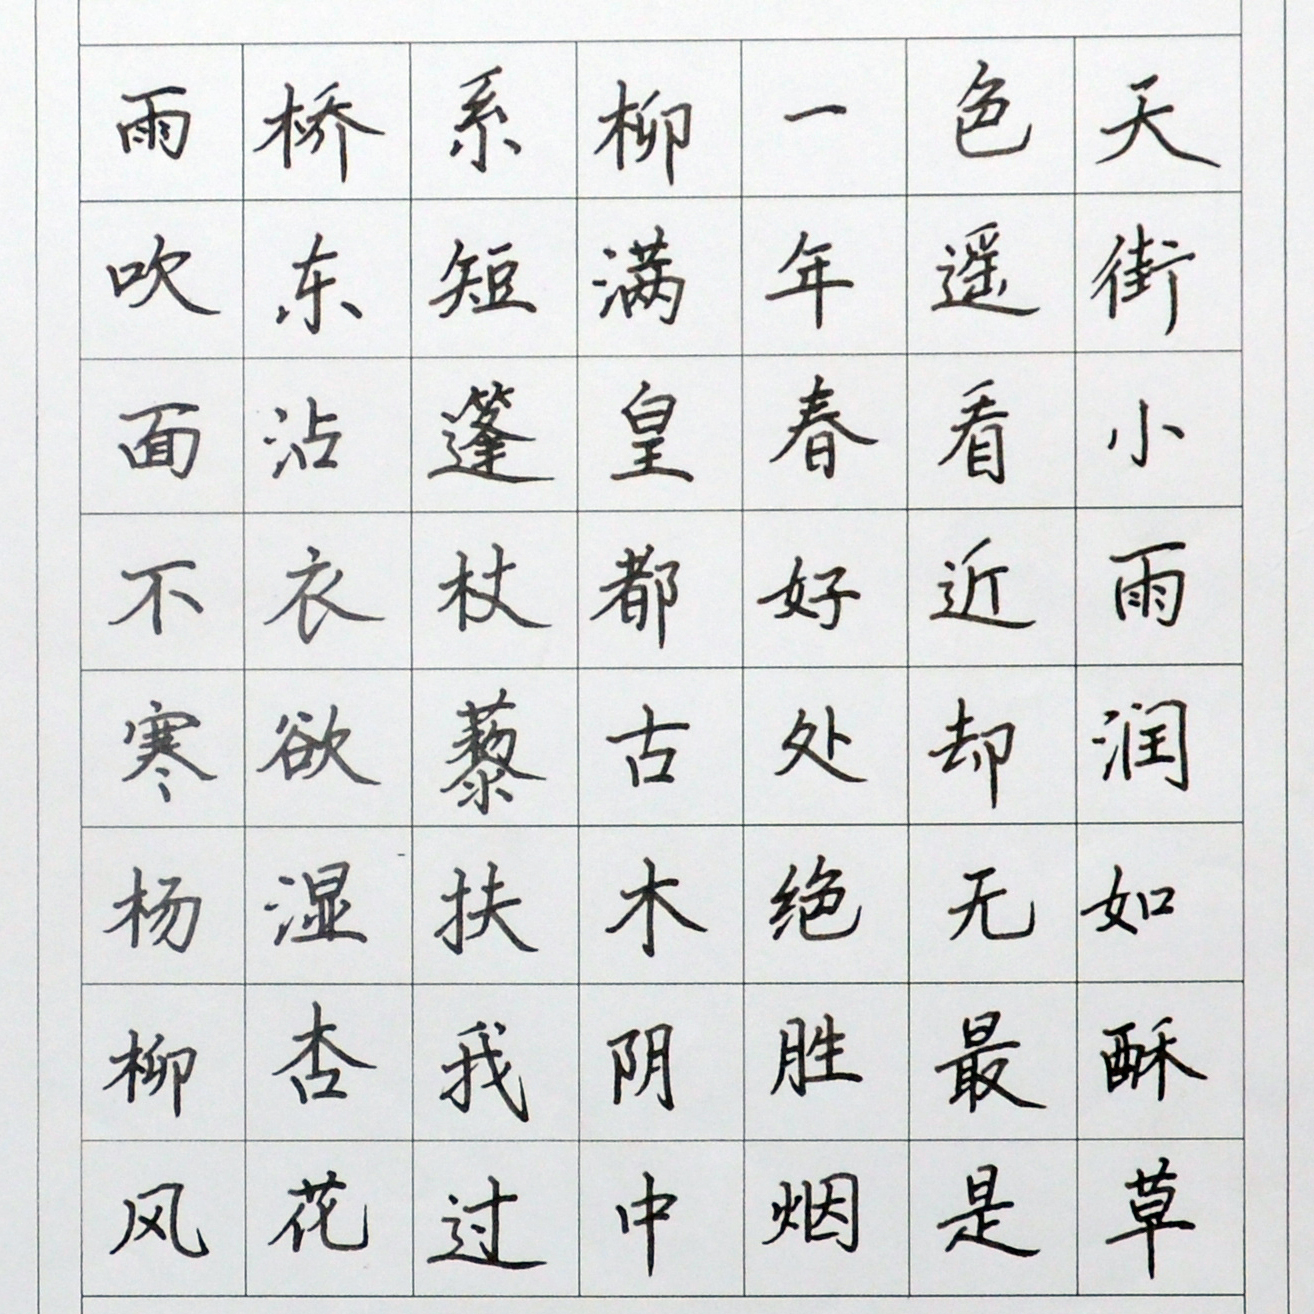 天街小雨润如酥草
色遥看近却无最是
一年春好处绝胜烟
柳满皇都古木阴中
系短篷杖藜扶我过
桥东沾衣欲湿杏花
雨吹面不寒杨柳风